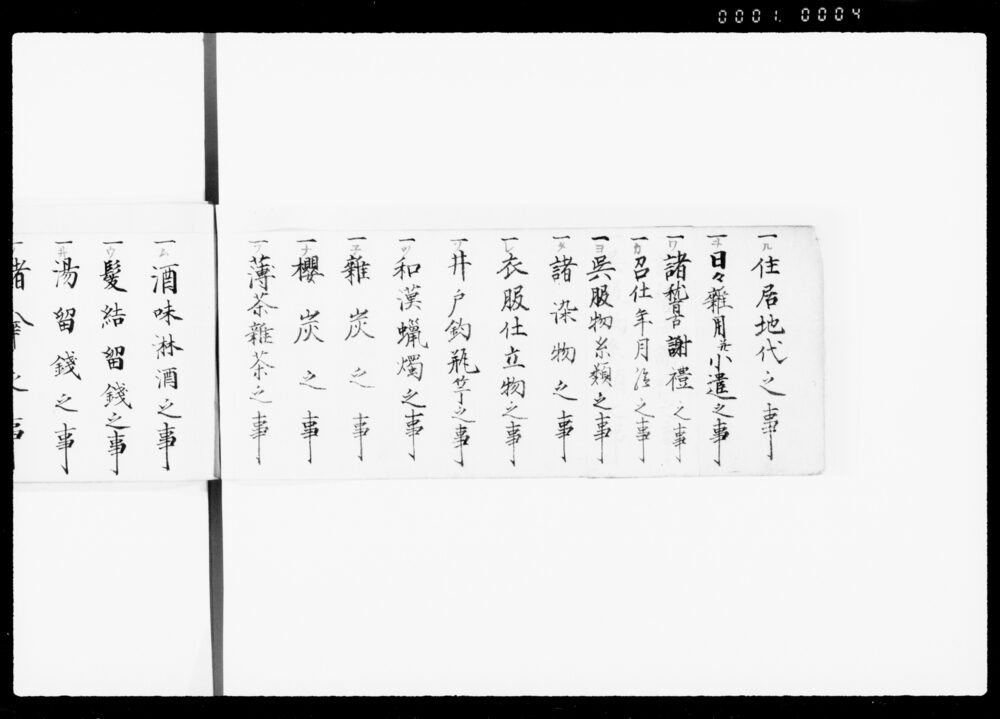 0001. 0004
一ル住居地代之事
一ヲ日々雜用并小遣之事
一ワ諸稽古謝禮之事
一カ召仕年月給之事
一ヨ呉服物糸類之事
一タ諸染物之事
一レ衣服仕立物之事
一ソ井戸釣瓶竿之事
一ツ和漢蠟燭之事
一子雜炭之事
一ナ櫻炭之事
一ラ薄茶雜茶之事
一ム酒味淋酒之事
一ウ髮結留錢之事
一井湯留錢之事
一諸 之事